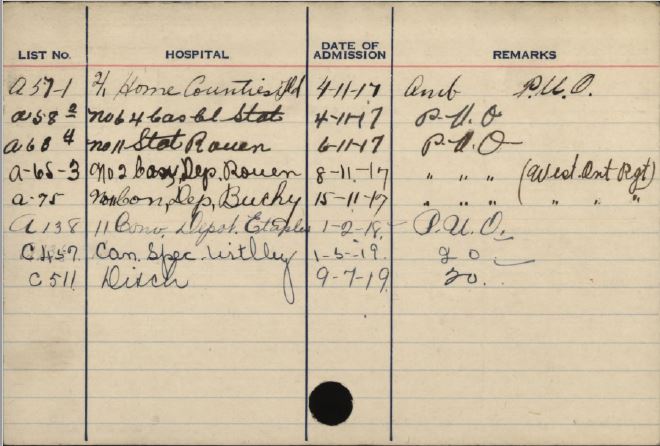 LIST No. HOSPITAL DATE OF ADMISSION REMARKS
A57-1 2/1 Home Counties Fld 4-11-17 Amb P.U.O.
a58 2 No 64 Cas Cl Stat 4-11-17 P.U.O
a63 4 No 11 Stat Rouen 6-11-17 P.U.O
A-65-3 No 2 Conv Dep. Rouen 8-11-17 " " " (West. Ont Rgt)
a-75 No 11 Con, Dep, Buchy 15-11-17 " " " " " "
A138 11 Conv. Depot. Etaples 1-2-18 - P.U.O.
C457 Can. Spec. Witley 1-5-19.
C511 Disch 9-7-19